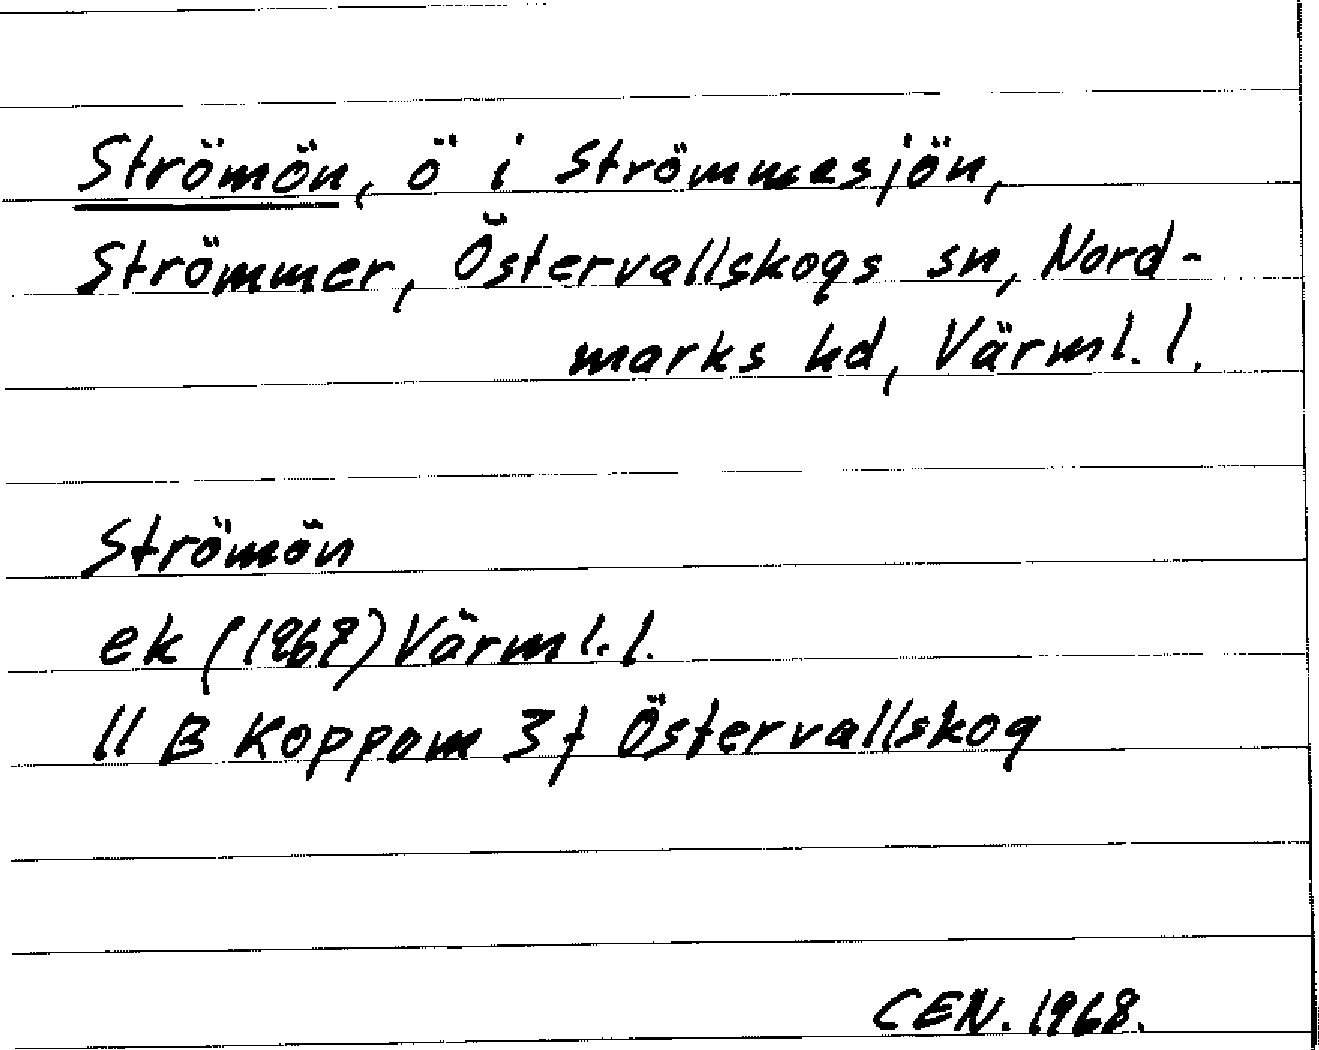 Strömön, ö i Strömmesjön,
Strömmer, Östervallskogs sn, Nord-
marks hd, Värml. l.
Strömön
ek (1967) Värml. l.
11 B Koppom 3f Östervallskog
CEN. 1968.